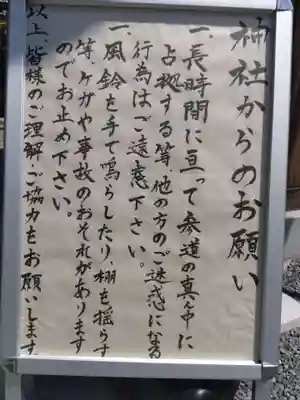 神社からのお願い
一、長時間に亘って参道の真ん中に
占拠する等、他の方のご迷惑になる
行為はご遠慮下さい。
一、風鈴を手で鳴らしたり、棚を揺らす
等、ケガや事故のおそれがあります
のでお止め下さい。
以上、皆様のご理解、ご協力をお願いします